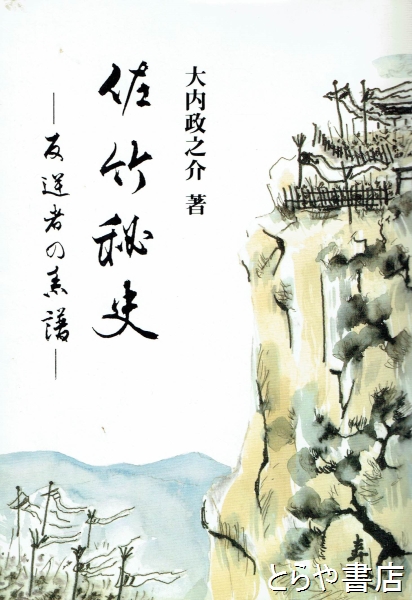 大内政之介 著
佐竹秘史
―反逆者の素譜―
とらや書店